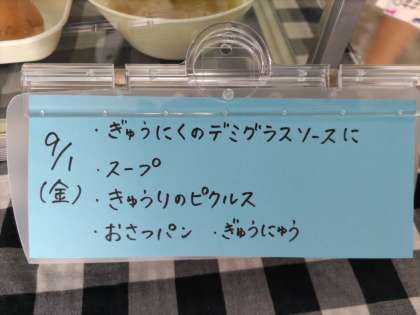 9/1
(金)
・ぎゅうにくのデミグラスソースに
・スープ
・きゅうりのピクルス
・おさつパン ・ぎゅうにゅう